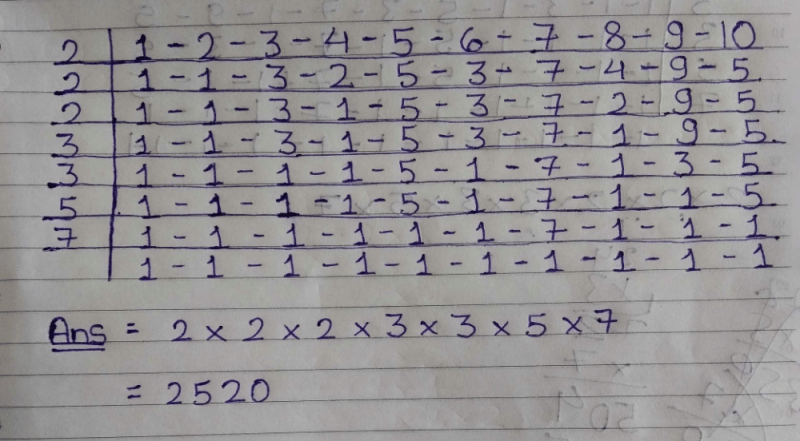 2 | 1 - 2 - 3 - 4 - 5 - 6 - 7 - 8 - 9 - 10
2 | 1 - 1 - 3 - 2 - 5 - 3 - 7 - 4 - 9 - 5
2 | 1 - 1 - 3 - 1 - 5 - 3 - 7 - 2 - 9 - 5
3 | 1 - 1 - 3 - 1 - 5 - 3 - 7 - 1 - 9 - 5
3 | 1 - 1 - 1 - 1 - 5 - 1 - 7 - 1 - 3 - 5
5 | 1 - 1 - 1 - 1 - 5 - 1 - 7 - 1 - 1 - 5
7 | 1 - 1 - 1 - 1 - 1 - 1 - 7 - 1 - 1 - 1
| 1 - 1 - 1 - 1 - 1 - 1 - 1 - 1 - 1 - 1
Ans = 2 × 2 × 2 × 3 × 3 × 5 × 7
= 2520